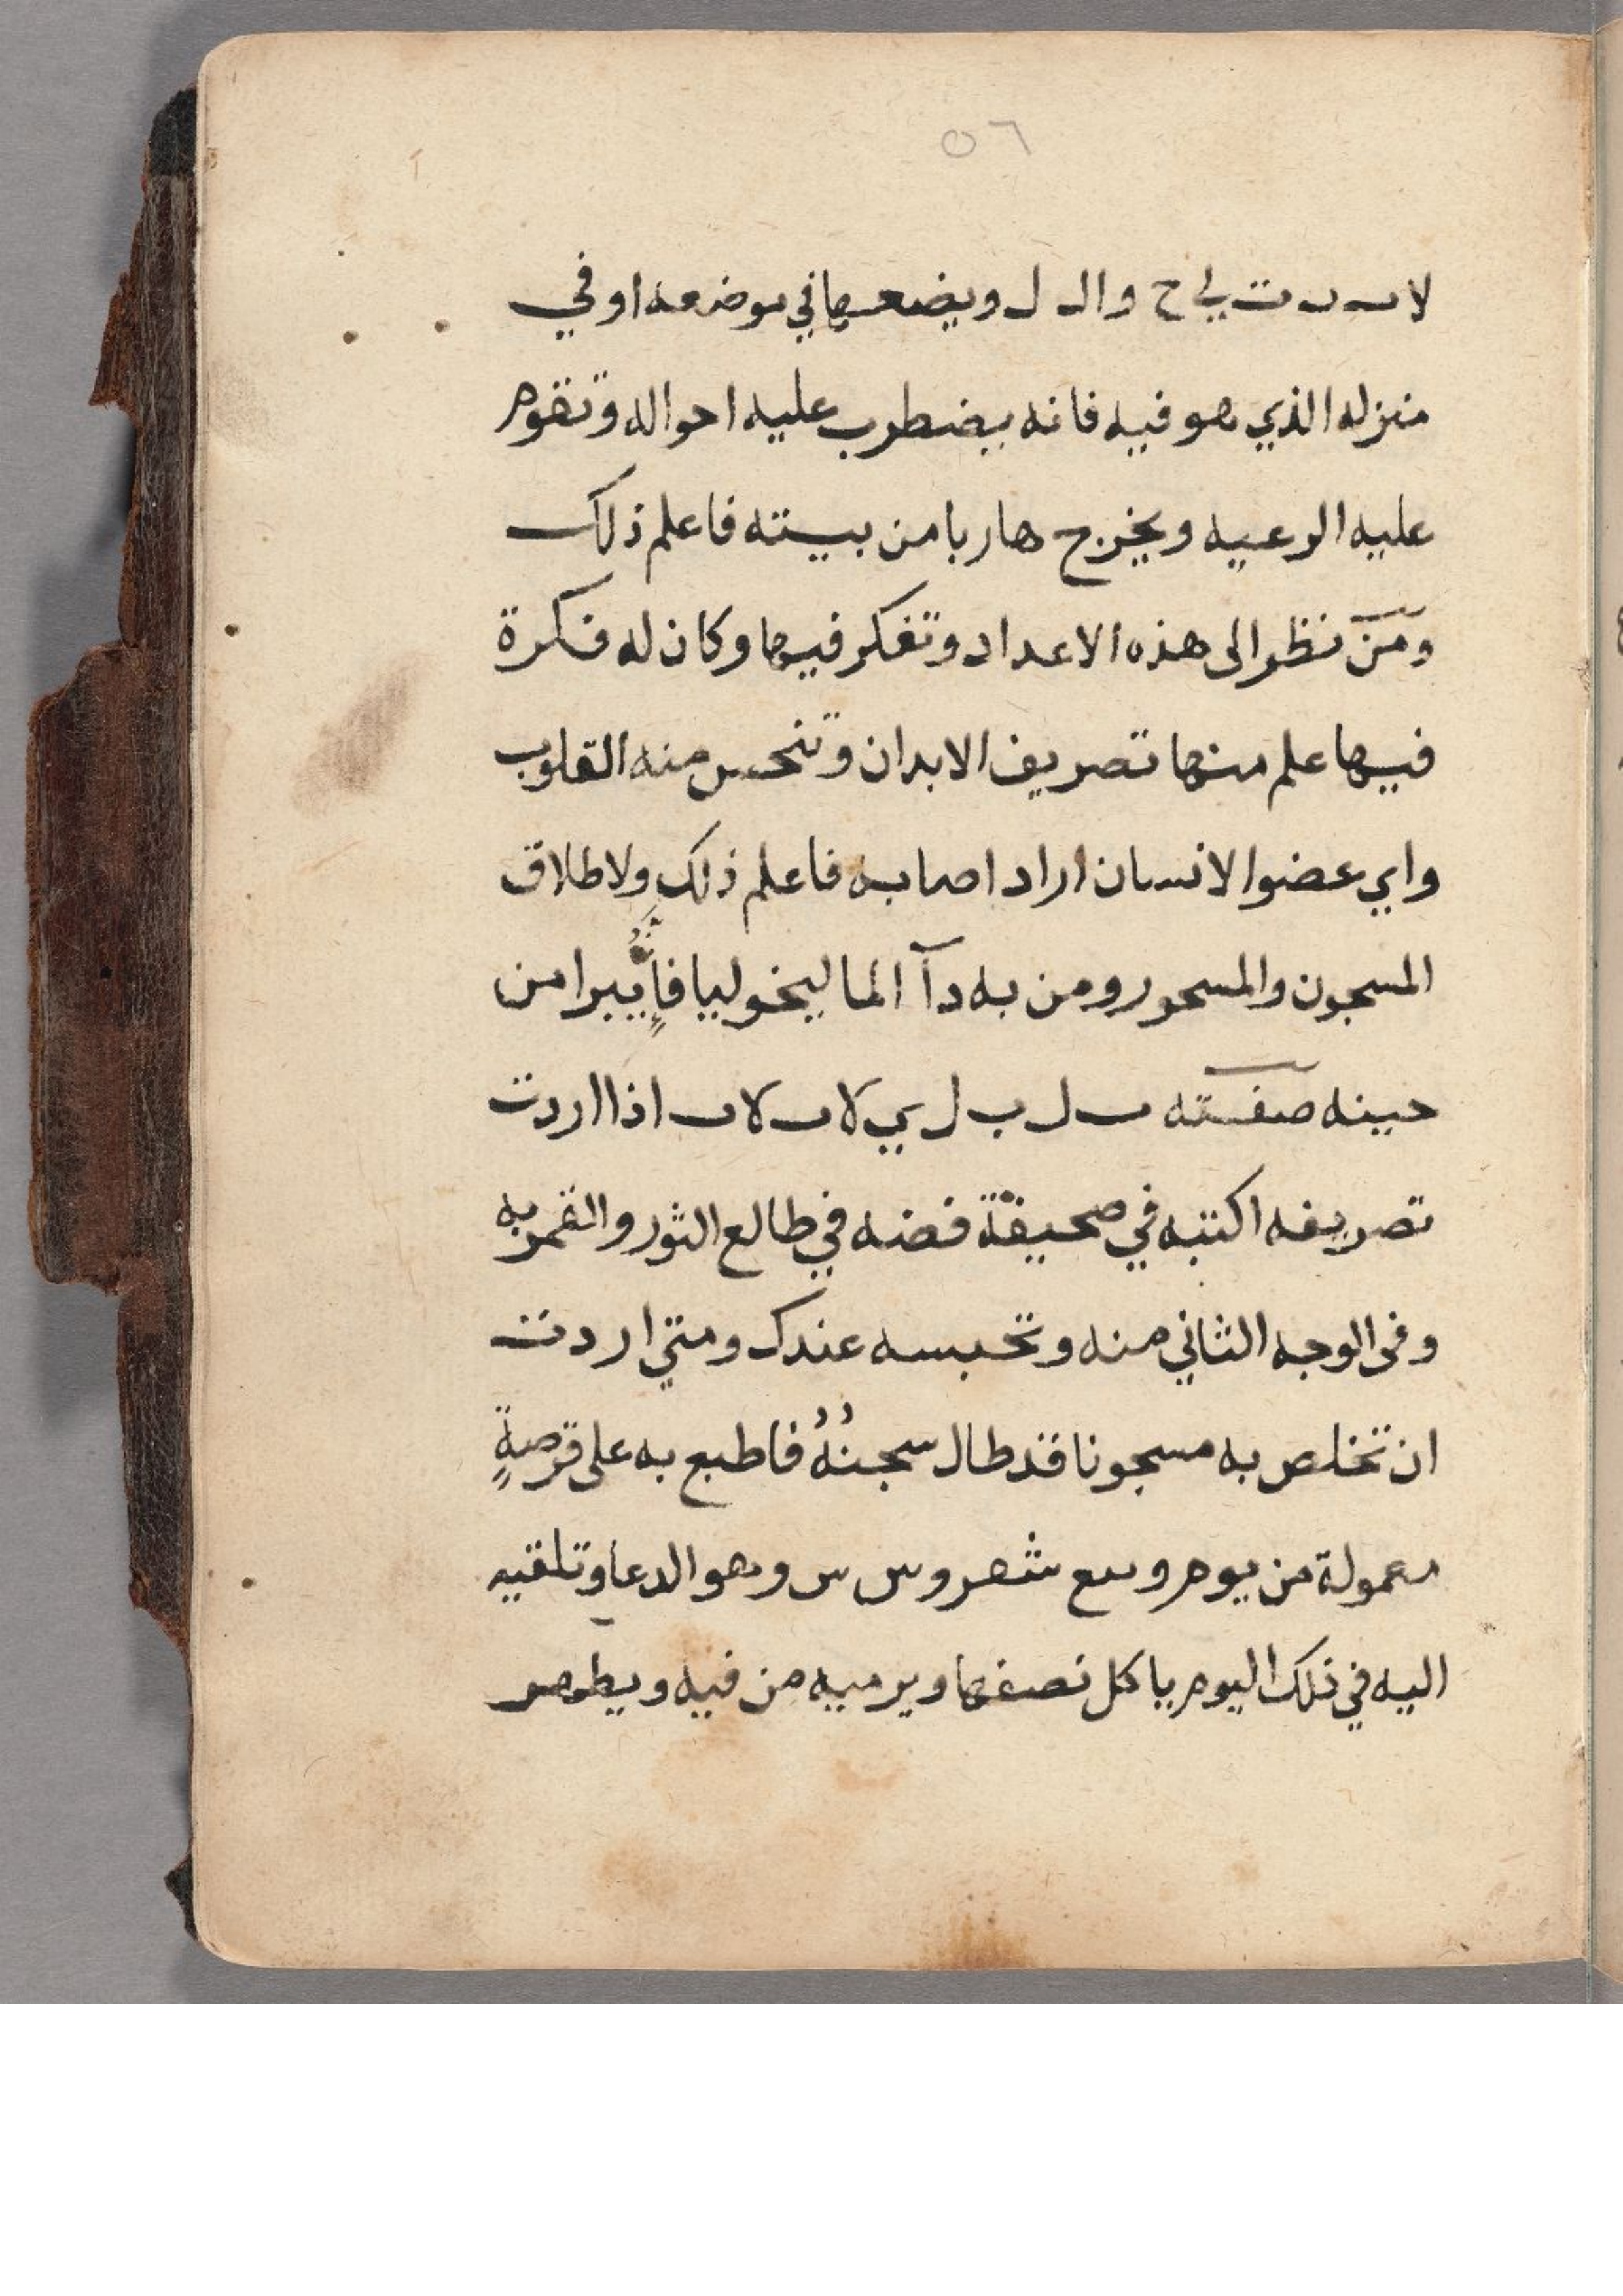 ٥٦
لا ت ي ح وال ل ويضعها في موضعه او في
منزله الذي هو فيه فانه يضطرب عليه احواله وتقوم
عليه الرعيه ويخرج هاربا من بيته فاعلم ذلك
ومن نظر الى هذه الاعداد وتفكر فيها وكان له فكرة
فيها علم منها تصريف الابدان وتنحس منه القلوب
واي عضوا لانسان اراد اصابه فاعلم ذلك ولاطلاق
المسجون والمسحور ومن به دآ الماليخوليا فإنّه يبرا من
حينه صفته ل ب ل ي لا لا اذا اردت
تصريفه اكتبه في صحيفة فضه في طالع الثور والقمر به
وفى الوجه الثاني منه وتحبسه عندك ومتي اردت
ان تخلص به مسجونا قد طال سجنُهُ فاطبع به على قرصةٍ
معمولة من يوم وهو الدعا وتلقيه
اليه في ذلك اليوم ياكل نصفها ويرميه من فيه ويطهر